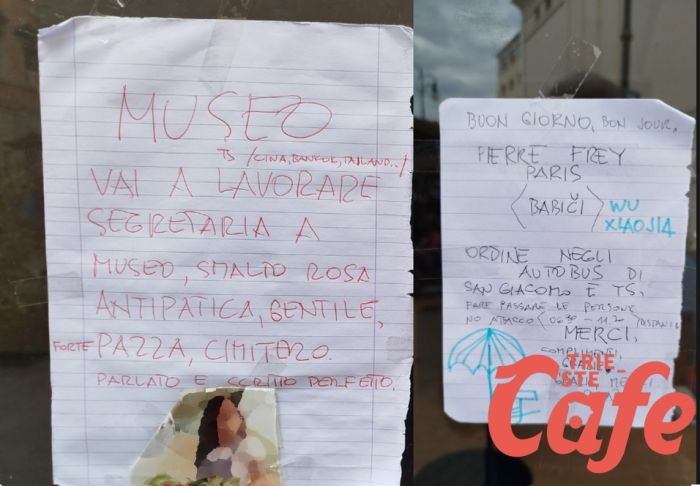 MUSEO
TS /CINA, BANKOK, TAILAND../
VAI A LAVORARE
SEGRETARIA A
MUSEO, SMALTO ROSA
ANTIPATICA, GENTILE,
FORTE PAZZA, CIMITERO.
PARLATO E SCRITTO PERFETTO.
BUON GIORNO, BON JOUR,
PIERRE FREY
PARIS
BABIČI WU
XIAOJIA
ORDINE NEGLI
AUTOBUS DI
SAN GIACOMO E TS.
FARE PASSARE LE PERSONE
NO ATTACCO
MERCI,
COMPLIMENTI,
TRIE
STE
Cafe